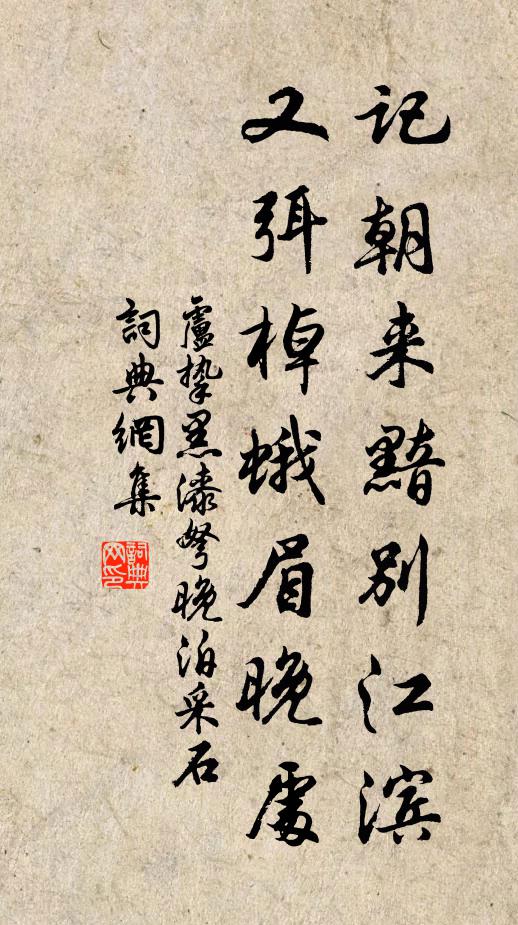 记朝来黯别江滨
又弭棹蛾眉晚處
盧摯黑漆弩晚泊采石
詞典網集
詞典網印